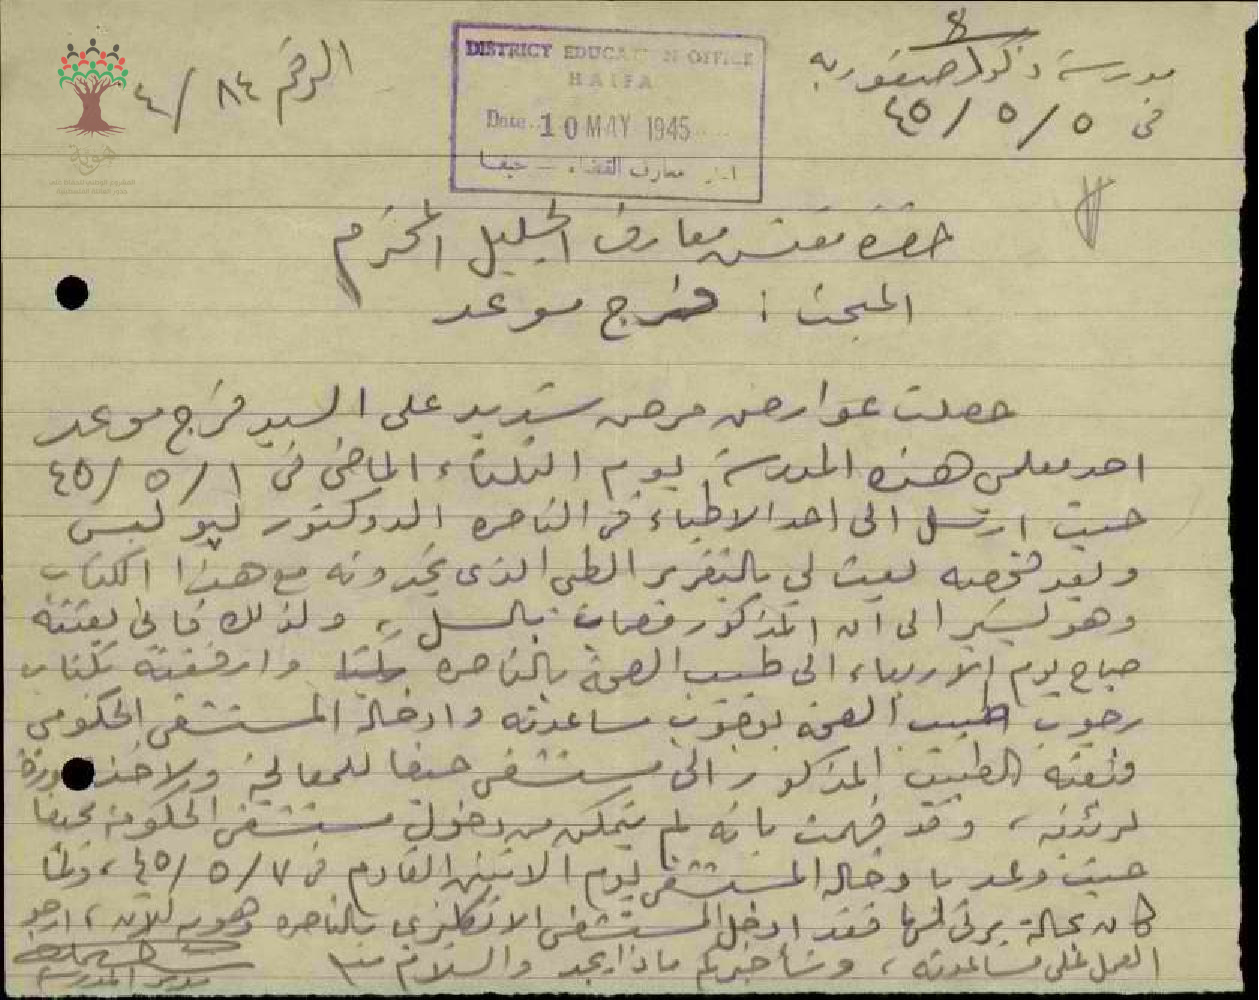 ٨
مدرسة ذكور صفورية
في ٥ / ٥ / ٤٥
الرقم ٨٤ / ٤
DISTRICT EDUCATION OFFICE
HAIFA
Date. 10 MAY 1945
معارف القضاء - حيفا
هوية
حضرة مفتش معارف الجليل المحترم
المبحث : فرج موعد
حصلت عوارض مرض شديد على السيد فرج موعد
احد معلمي هذه المدرسة يوم الثلثاء الماضي في ١ / ٥ / ٤٥
حيث ارسل الى احد الاطباء في الناصره الدوكتور
وبعد فحصه بعث لي بالتقرير الطبي الذي تجدونه مع هذا الكتاب
وهو يشير الى ان المذكور مصاب بالسل ، ولذلك فاني بعثته
صباح يوم الاربعاء الى طبيب الصحة بالناصره وارفقته بكتاب
رجوت طبيب الصحة بوجوب مساعدته وادخاله المستشفى الحكومي
فبعثه الطبيب المذكور الى مستشفى حيفا للمعالجة ولاخذ صورة
لرئتيه ، وقد فهمت بانه لم يتمكن من دخول مستشفى الحكومة بحيفا
حيث وعد بادخاله المستشفى يوم الاثنين القادم في ٧ / ٥ / ٤٥ ، ولما
كان بحالة يرثى لها فقد ادخل المستشفى الانكليزي بالناصره وهو به للآن ، ارجو
العمل على مساعدته ، وسأخبركم ماذا يجد والسلام
مدير المدرسة